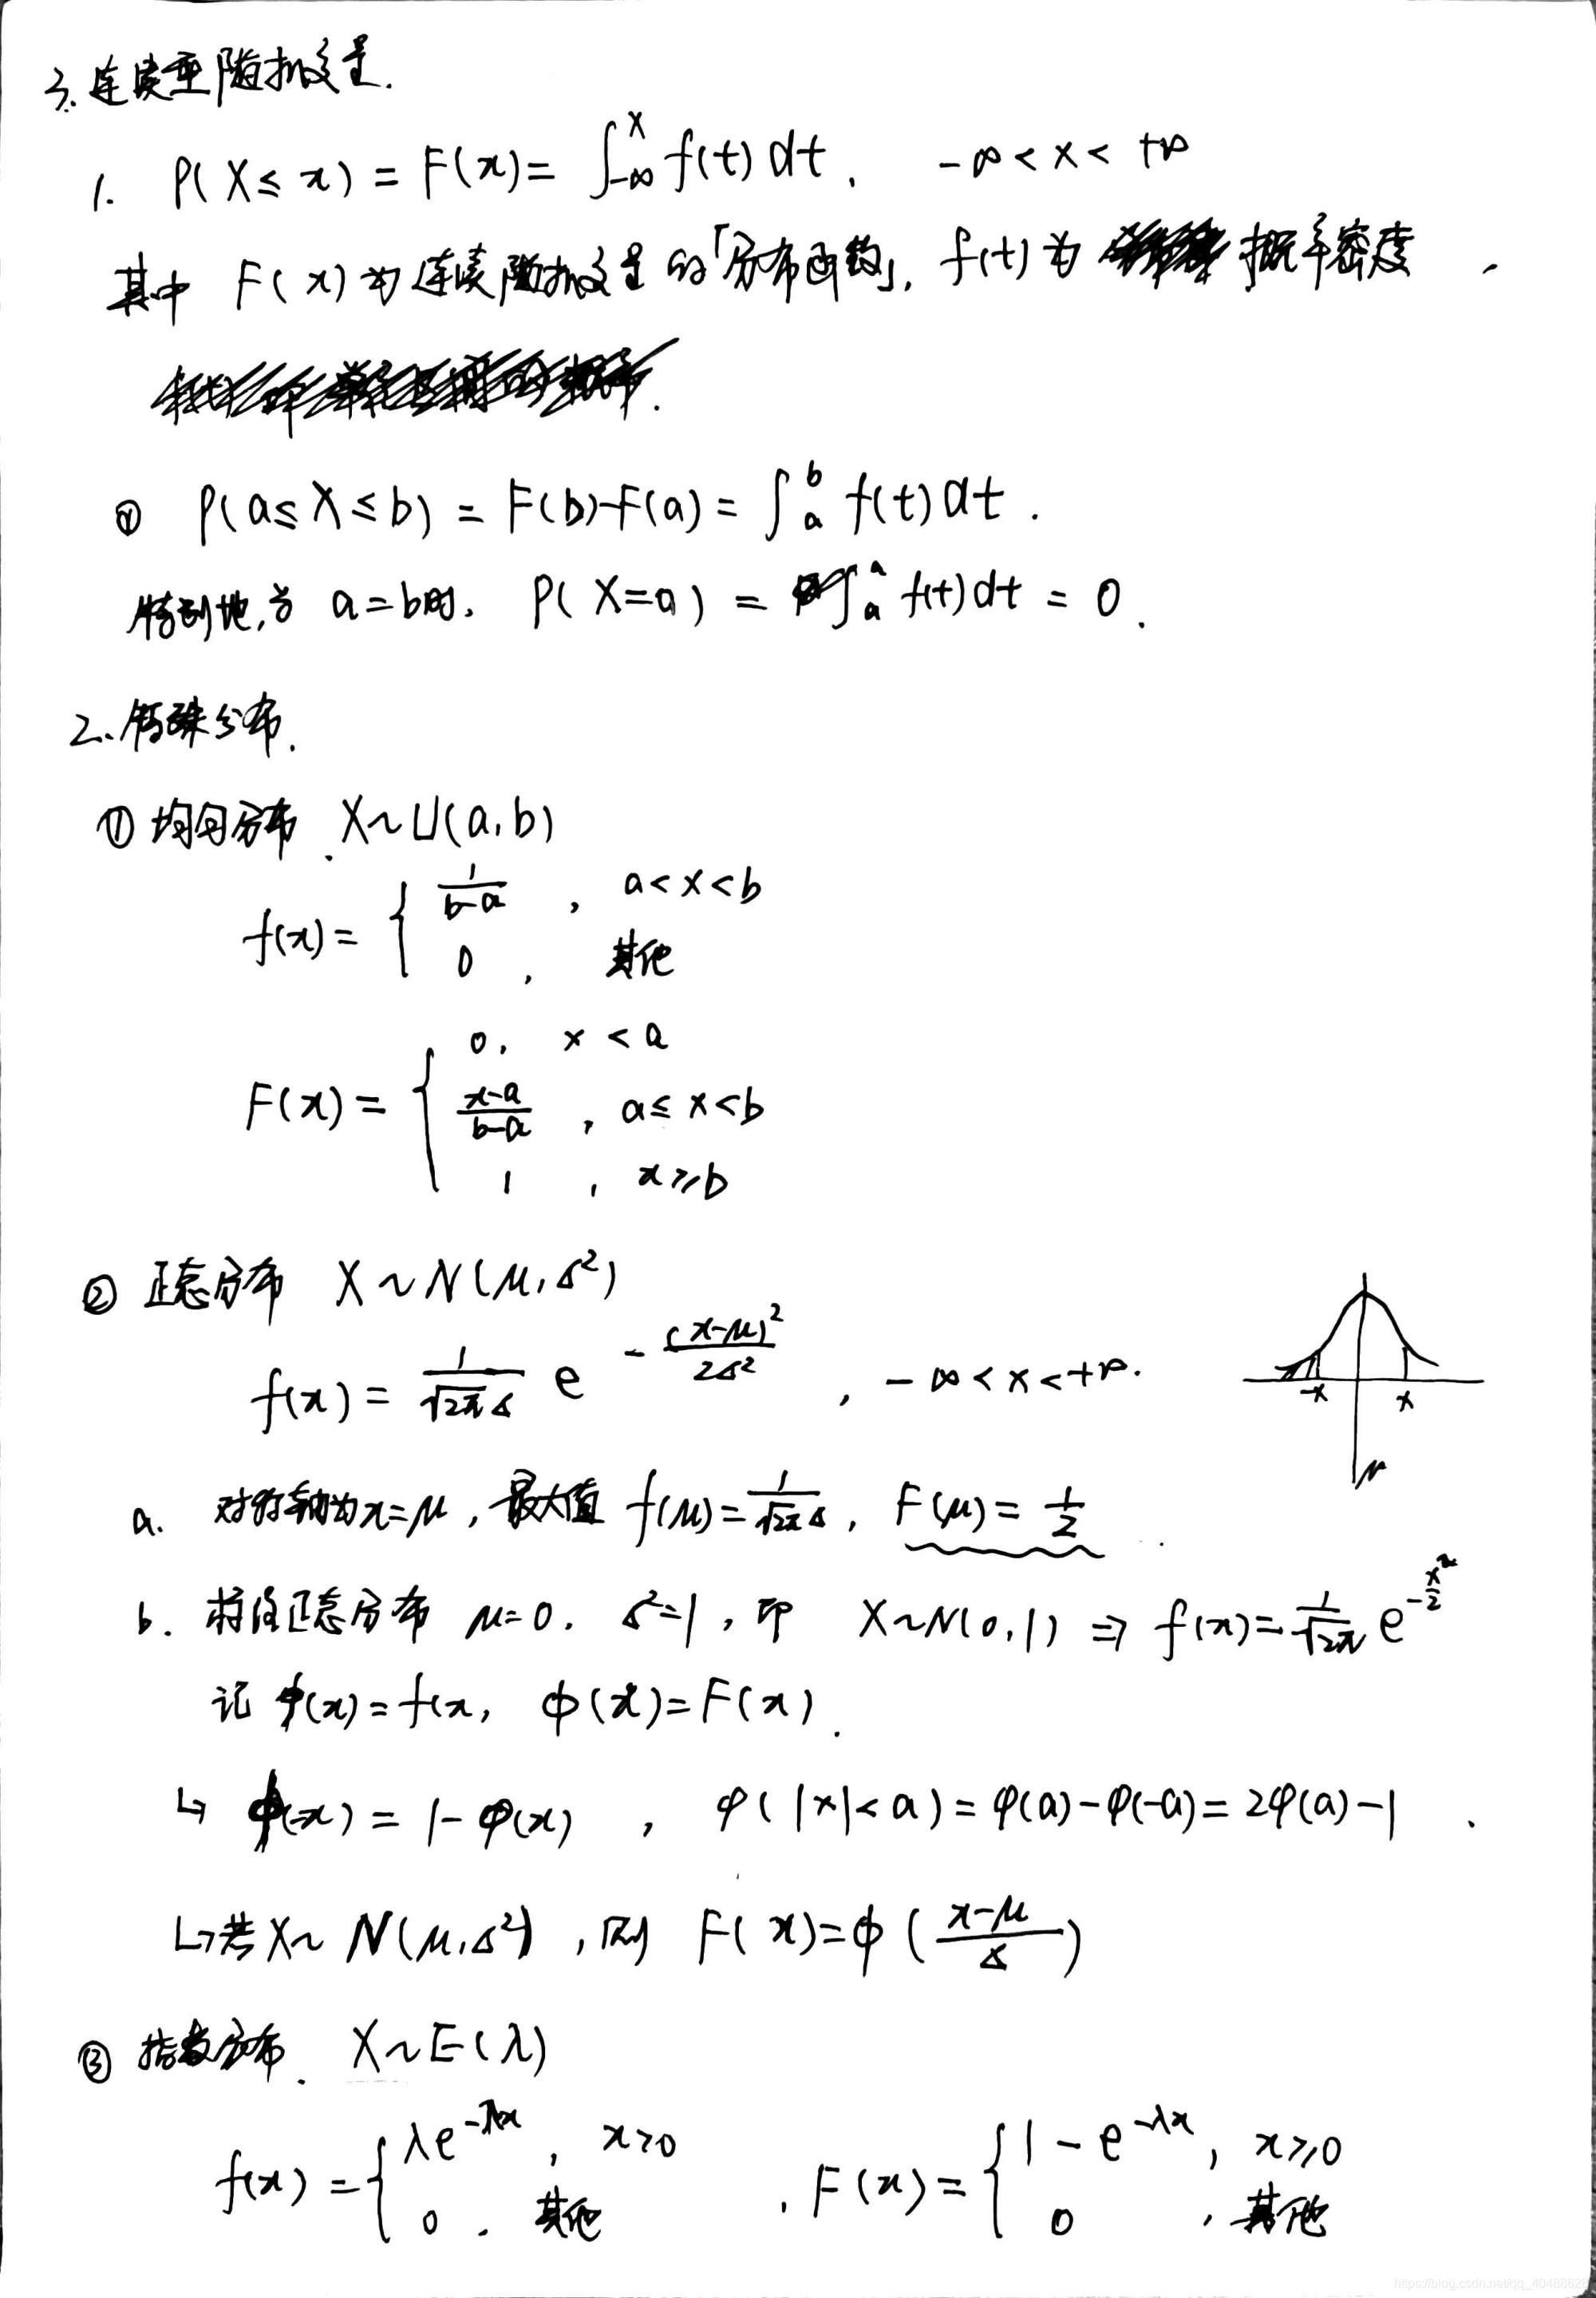 3. 连续型随机变量.
1. P(X≤x) = F(x) = ∫_{-∞}^{x} f(t) dt, -∞ < x < +∞
其中 F(x) 为 连续随机变量 的「分布函数」, f(t) 为 概率密度.
① P(a≤X≤b) = F(b)-F(a) = ∫_{a}^{b} f(t) dt.
特别地, 当 a=b时, P(X=a) = ∫_{a}^{a} f(t) dt = 0.
2. 特殊分布.
① 均匀分布. X~U(a,b)
f(x) = { 1/(b-a), a<x<b
0, 其他
F(x) = { 0, x<a
(x-a)/(b-a), a≤x<b
1, x≥b
② 正态分布 X~N(μ,σ²)
f(x) = 1/(√2π σ) e^{-(x-μ)²/2σ²}, -∞<x<+∞.
-x x
μ
a. 对称轴为x=μ, 最大值 f(μ)=1/(√2π σ), F(μ)=1/2.
b. 标准正态分布 μ=0, σ²=1, 即 X~N(0,1) ⇒ f(x)=1/√2π e^{-x²/2}
记 φ(x)=f(x, Φ(x)=F(x).
↳ φ(-x) = 1-φ(x), φ(|x|<a) = φ(a)-φ(-a) = 2φ(a)-1.
↳ 若X~N(μ,σ²), 则 F(x)=Φ((x-μ)/σ)
③ 指数分布. X~E(λ)
f(x) = { λe^{-λx}, x>0 , F(x) = { 1-e^{-λx}, x≥0
0, 其他 0, 其他